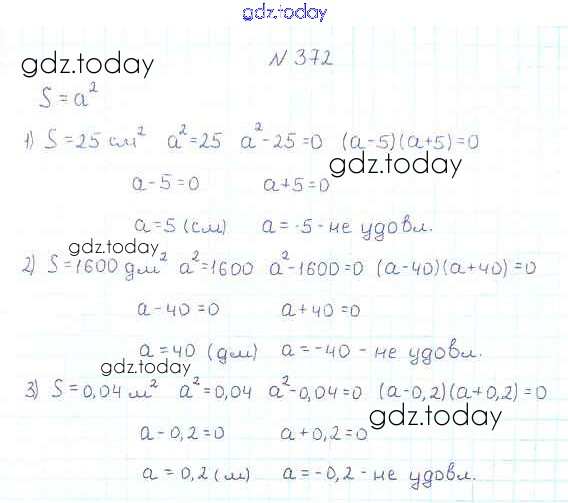 gdz.today
gdz.today
N 372
S = a²
1) S = 25 см² a² = 25 a² - 25 = 0 (a-5)(a+5) = 0
gdz.today
a - 5 = 0 a + 5 = 0
a = 5 (см) a = -5 - не удовл.
gdz.today
2) S = 1600 дм² a² = 1600 a² - 1600 = 0 (a-40)(a+40) = 0
a - 40 = 0 a + 40 = 0
a = 40 (дм) a = -40 - не удовл.
gdz.today
3) S = 0,04 м² a² = 0,04 a² - 0,04 = 0 (a-0,2)(a+0,2) = 0
gdz.today
a - 0,2 = 0 a + 0,2 = 0
a = 0,2 (м) a = -0,2 - не удовл.